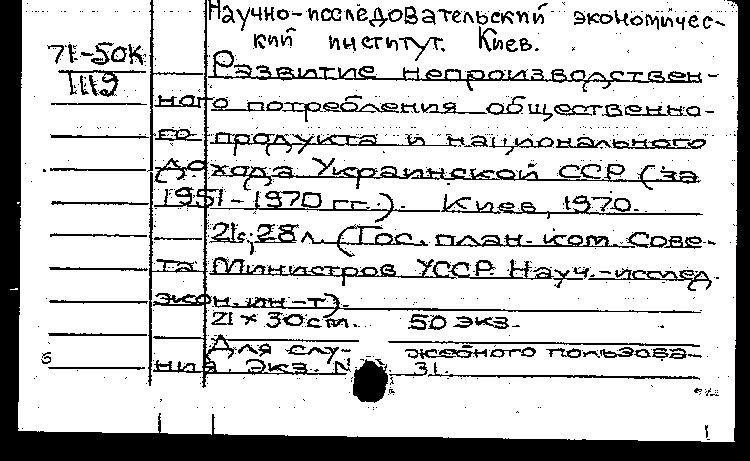 Научно-исследовательский экономичес-
кий институт. Киев.
71-50К
1119
Развитие непроизводствен-
ного потребления общественно-
го продукта и национального
дохода Украинской ССР (за
1951-1970 гг.). Киев, 1970.
21с; 28 л. (Гос. план. ком. Сове-
та Министров УССР. Науч.-исслед.
экон. ин-т).
21 × 30 cm. 50 экз.
Для слу- жебного пользова-
ния. Экз. N 31.
б